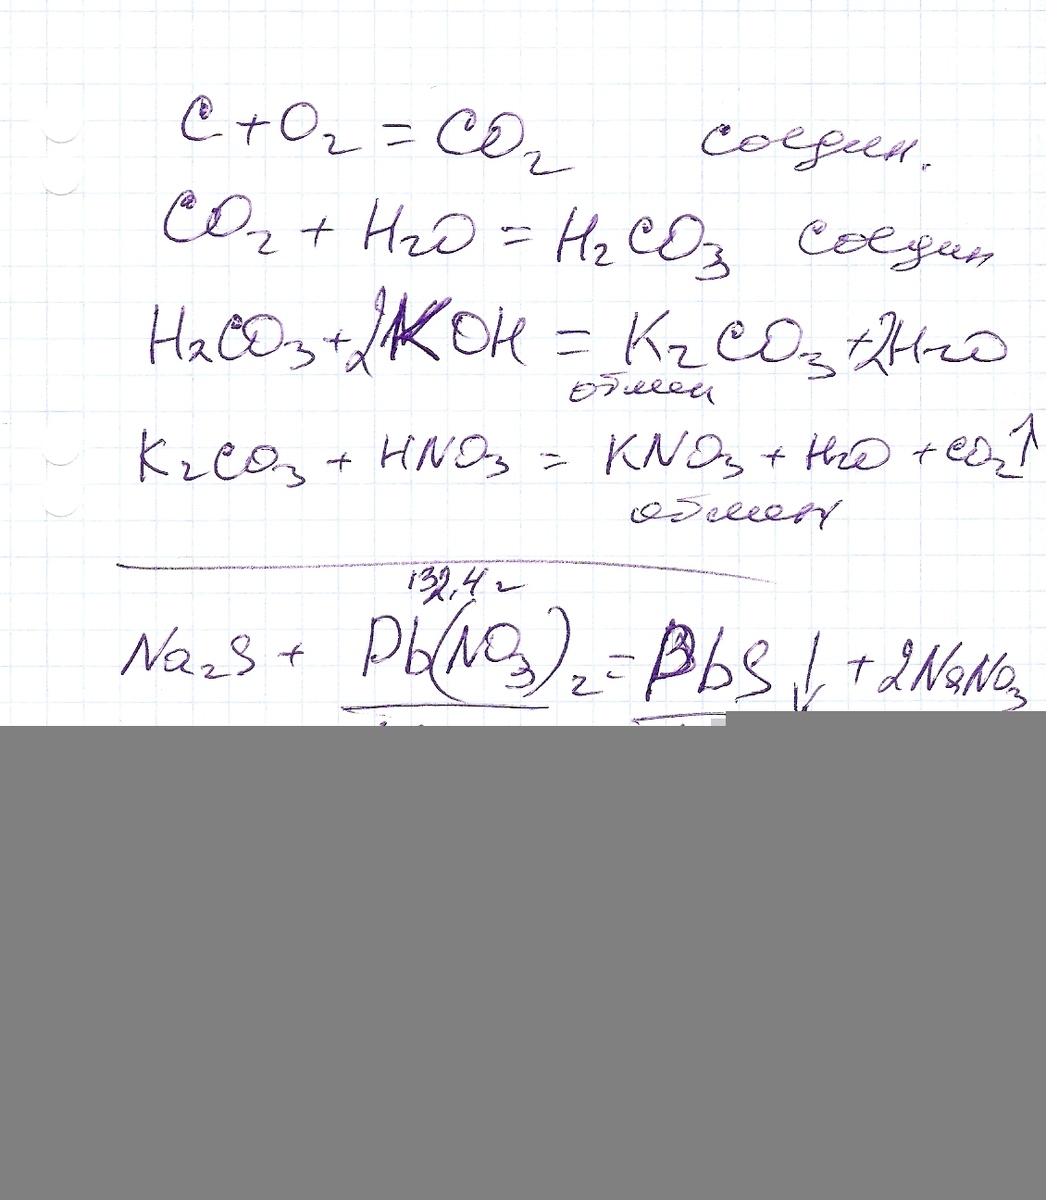 C + O2 = CO2 соедин.
CO2 + H2O = H2CO3 соедин
H2CO3 + 2KOH = K2CO3 + 2H2O
обмен
K2CO3 + HNO3 = KNO3 + H2O + CO2↑
обмен
132,4 г
Na2S + Pb(NO3)2 = PbS↓ + 2NaNO3